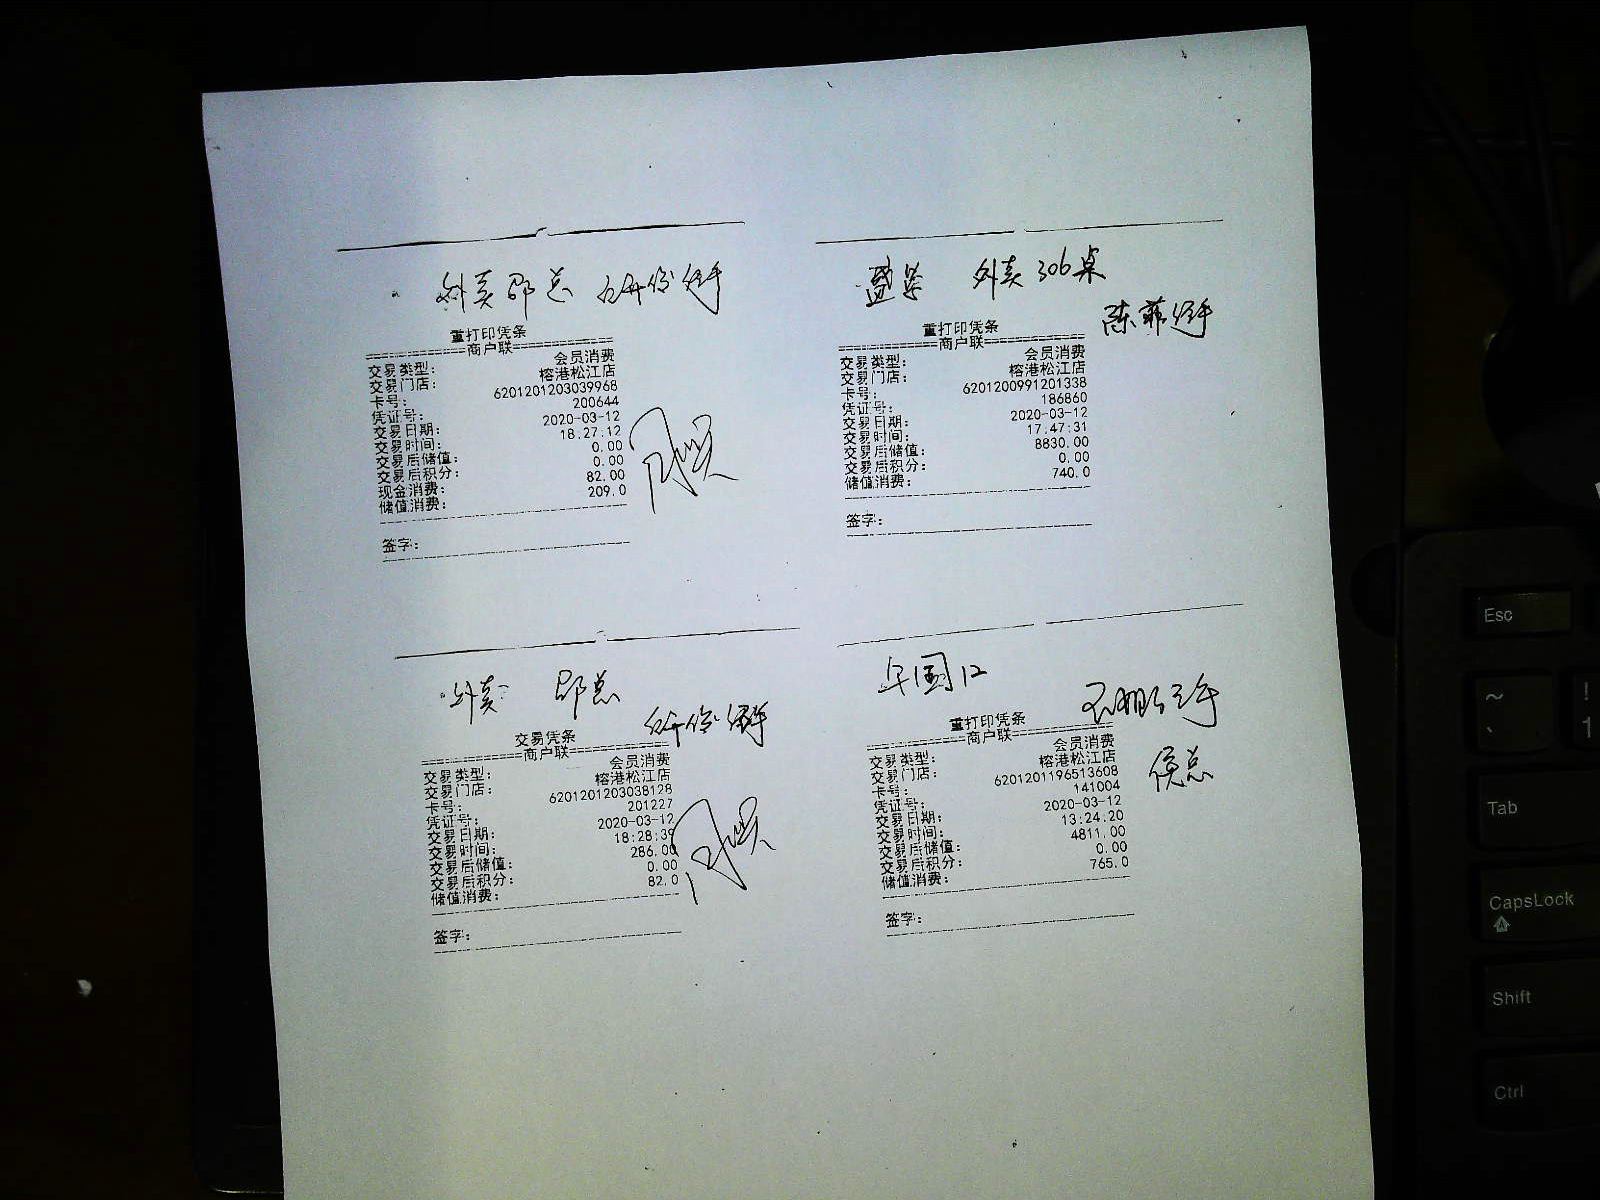 外卖 邵总
重打印凭条
================商户联================
交易类型： 会员消费
交易门店： 榕港松江店
卡号： 6201201203039968
凭证号： 200644
交易日期： 2020-03-12
交易时间： 18:27:12
交易后储值： 0.00
交易后积分： 0.00
现金消费： 82.00
储值消费： 209.0
签字：
盛荣 外卖306桌
陈菲经手
重打印凭条
================商户联================
交易类型： 会员消费
交易门店： 榕港松江店
卡号： 6201200991201338
凭证号： 186860
交易日期： 2020-03-12
交易时间： 17:47:31
交易后储值： 8830.00
交易后积分： 0.00
储值消费： 740.0
签字：
外卖 邵总
交易凭条
================商户联================
交易类型： 会员消费
交易门店： 榕港松江店
卡号： 6201201203038128
凭证号： 201227
交易日期： 2020-03-12
交易时间： 18:28:39
交易后储值： 286.00
交易后积分： 0.00
储值消费： 82.0
签字：
国12
侯总
重打印凭条
================商户联================
交易类型： 会员消费
交易门店： 榕港松江店
卡号： 6201201196513608
凭证号： 141004
交易日期： 2020-03-12
交易时间： 13:24:20
交易后储值： 4811.00
交易后积分： 0.00
储值消费： 765.0
签字：
Esc
~
、
!
1
Tab
CapsLock
Shift
Ctrl